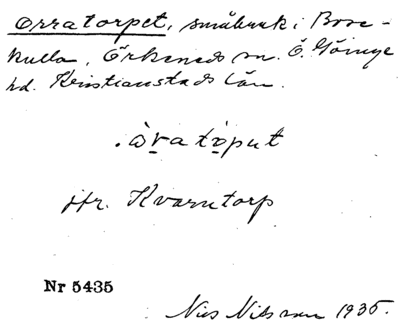 Orratorpet, småbruk i Bose-
kulla, Örkeneds sn. Ö. Göinge
hd. Kristianstads län.
.òratòput
jfr. Kvarntorp
Nr 5435
Nils Nilsson 1935.